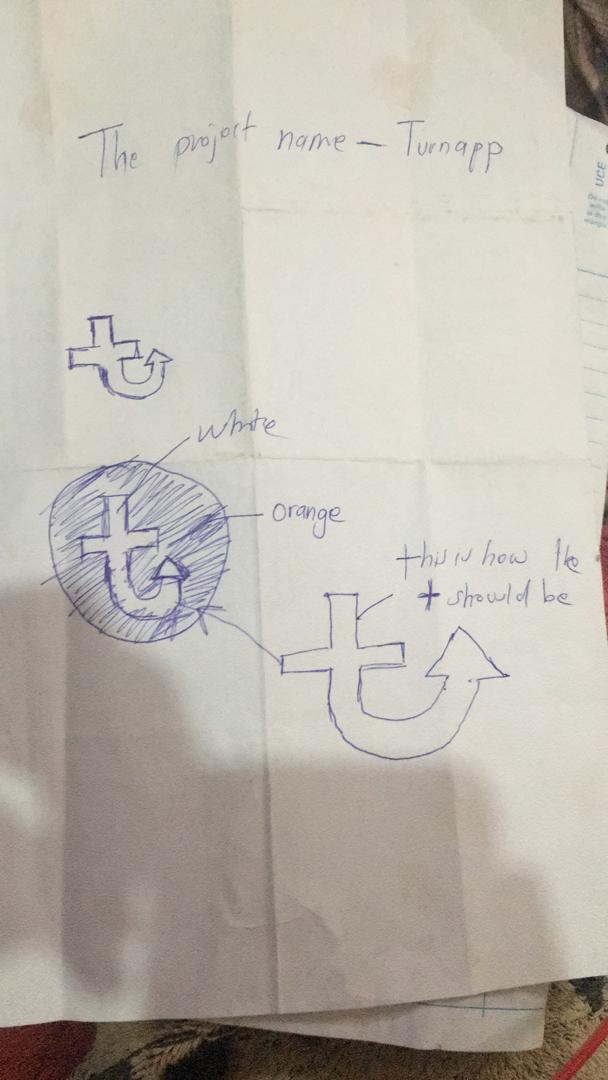 The project name - Turnapp
white
orange
this is how the
t should be
UCE